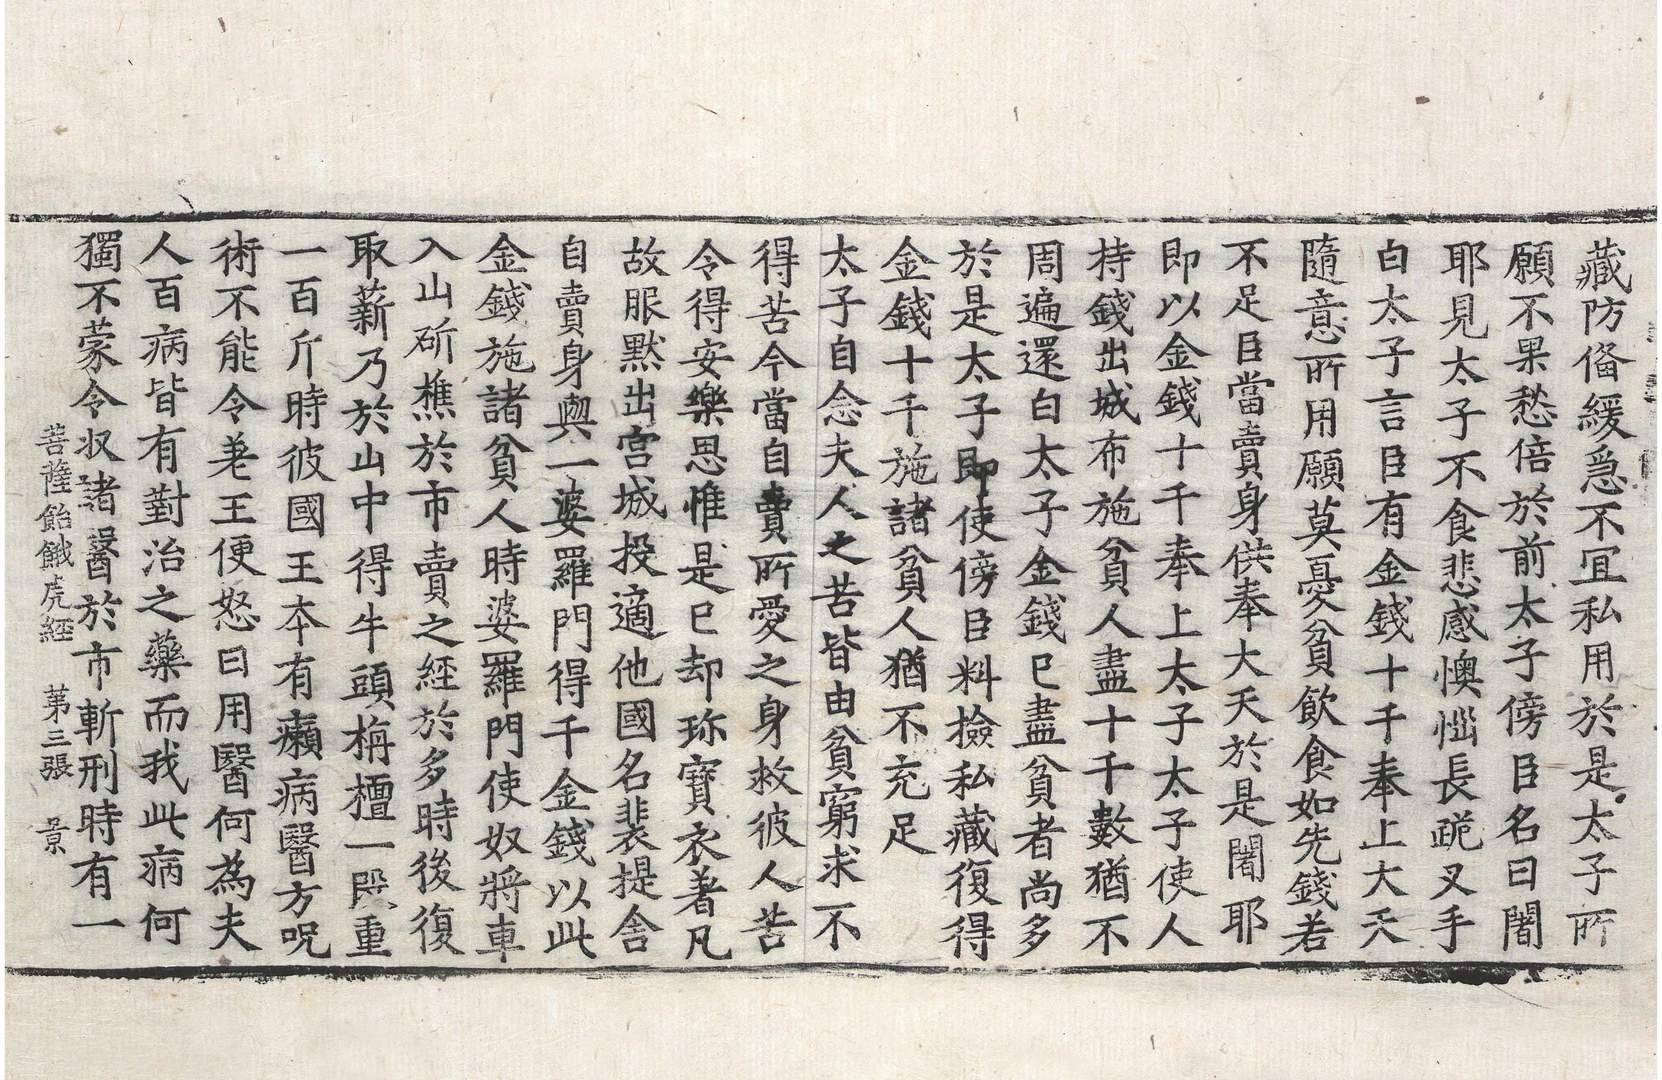 藏防俻緩急不宜私用於是太子所
願不果愁倍於前太子傍臣名曰闍
耶見太子不食悲感懊惱長跪叉手
白太子言臣有金錢十千奉上大天
隨意所用願莫憂貧飲食如先錢若
不足臣當賣身供奉大天於是闍耶
即以金錢十千奉上太子太子使人
持錢出城布施貧人盡十千數猶不
周遍還白太子金錢已盡貧者尚多
於是太子即使傍臣料撿私藏復得
金錢十千施諸貧人猶不充足
太子自念夫人之苦皆由貧窮求不
得苦今當自賣所愛之身救彼人苦
令得安樂思惟是已却珎寶衣著凡
故服默出宮城投適他國名裴提舍
自賣身與一婆羅門得千金錢以此
金錢施諸貧人時婆羅門使奴將車
入山斫樵於市賣之經於多時後復
取薪乃於山中得牛頭栴檀一段重
一百斤時彼國王本有癩病醫方呪
術不能令差王便怒曰用醫何為夫
人百病皆有對治之藥而我此病何
獨不蒙令収諸醫於市斬刑時有一
菩薩飴餓虎經 第三張 景